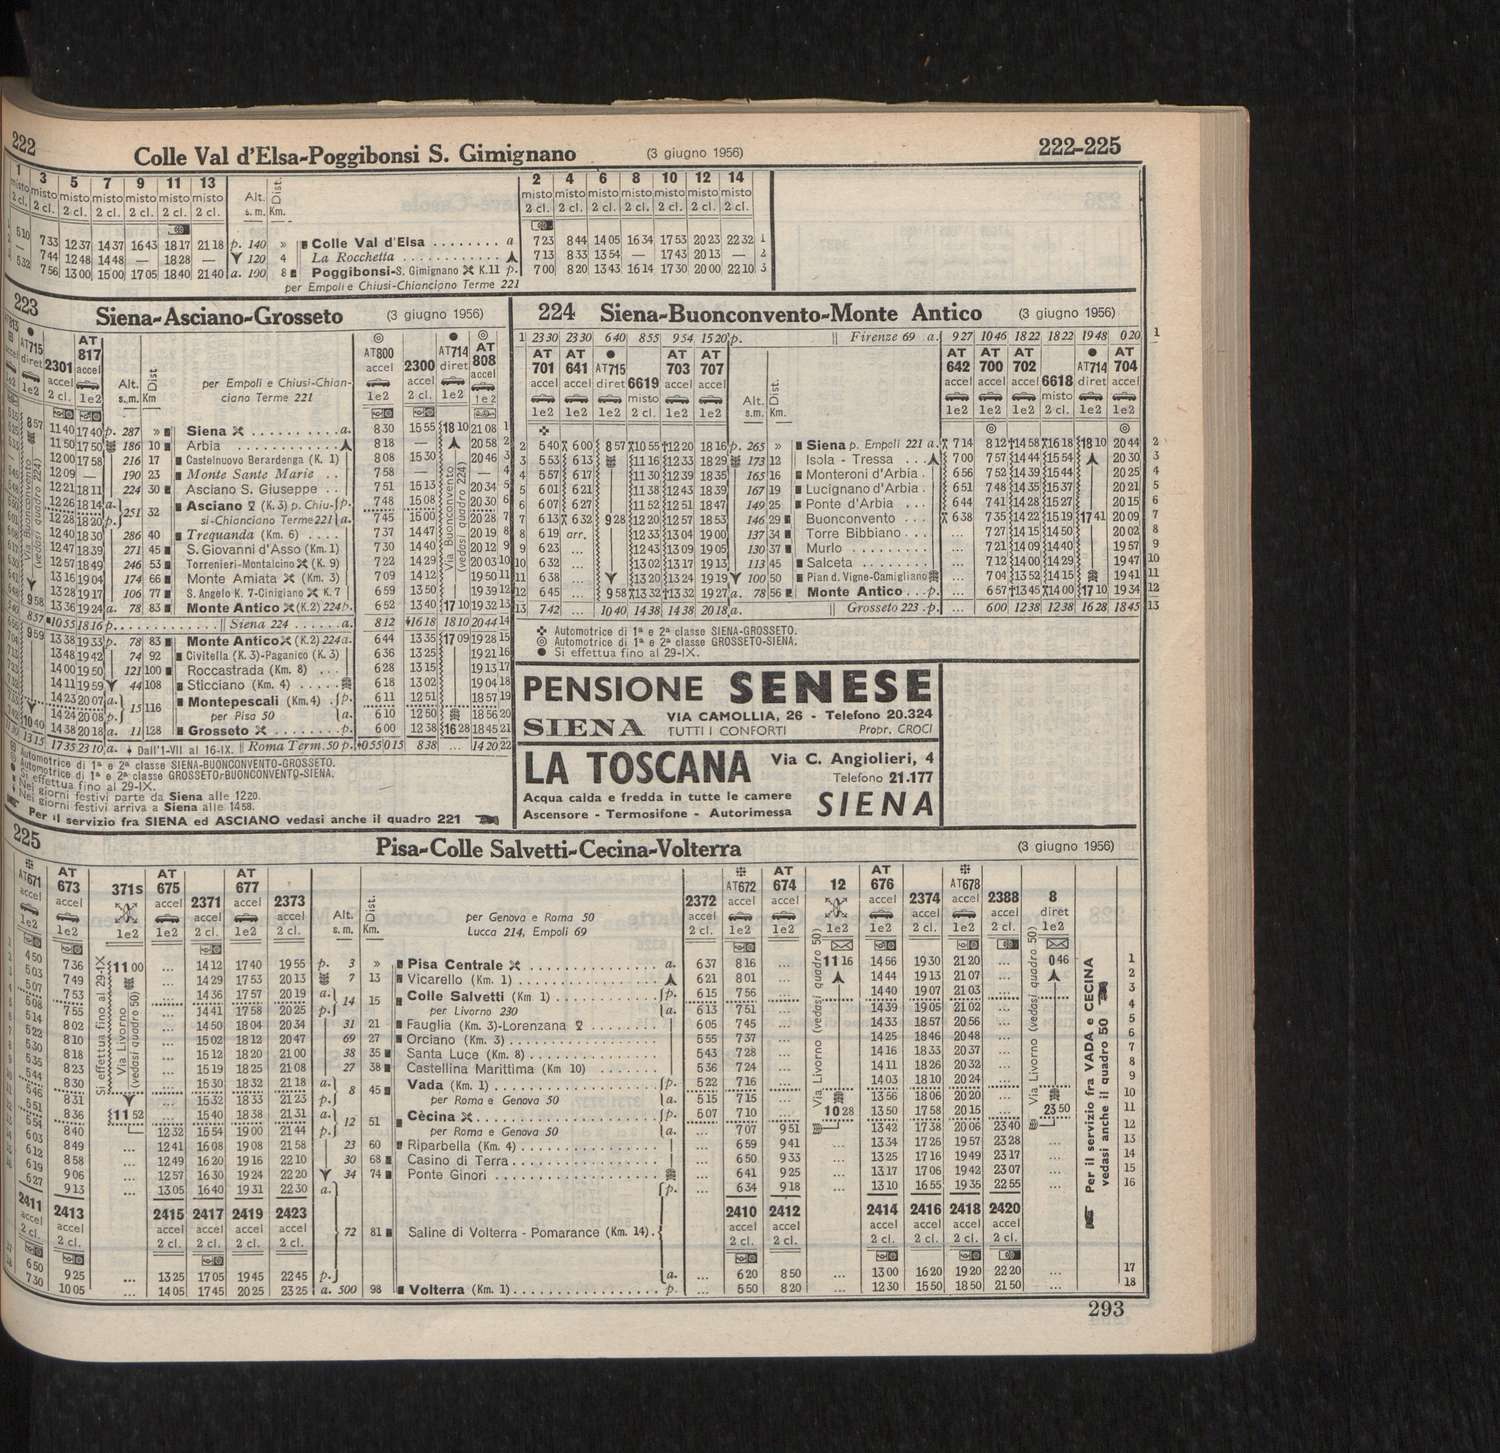 222
Colle Val d'Elsa-Poggibonsi S. Gimignano (3 giugno 1956) 222-225
1 3 5 7 9 11 13 2 4 6 8 10 12 14
misto misto misto misto misto misto misto Alt. Dist. misto misto misto misto misto misto misto
2 cl. 2 cl. 2 cl. 2 cl. 2 cl. 2 cl. 2 cl. s. m. Km. 2 cl. 2 cl. 2 cl. 2 cl. 2 cl. 2 cl. 2 cl.
510 733 1237 1437 1643 1817 2118 p. 140 » Colle Val d'Elsa ........ a 723 844 1405 1634 1753 2023 2232 1
— 744 1248 1448 — 1828 — 120 4 La Rocchetta ............ 713 833 1354 — 1743 2013 — 2
532 756 1300 1500 1705 1840 2140 a. 190 8 Poggibonsi-S. Gimignano K.11 p. 700 820 1343 1614 1730 2000 2210 3
per Empoli e Chiusi-Chianciano Terme 221
223 Siena-Asciano-Grosseto (3 giugno 1956)
AT715 diret 1e2 2301 accel 2 cl. AT 817 accel 1e2 Alt. s.m. Dist Km per Empoli e Chiusi-Chianciano Terme 221 AT800 accel 1e2 2300 accel 2 cl. AT714 diret 1e2 AT 808 accel 1e2
857 1140 1740 p. 287 » Siena .......... a. 830 1555 1810 2108 1
1150 1750 186 10 Arbia .......... 818 — 2058 2
1200 1758 216 17 Castelnuovo Berardenga (K. 1) 808 1530 2046 3
1209 — 190 23 Monte Sante Marie .. 758 — — 4
1221 1811 224 30 Asciano S. Giuseppe ... 751 1513 2034 5
1226 1814 a. 251 32 Asciano (K.3) p. Chiu- p. 748 1508 2030 6
1228 1820 p. si-Chianciano Terme 221 a. 745 1500 2028 7
1240 1830 286 40 Trequanda (Km. 6) .... 737 1447 2019 8
1247 1839 271 45 S. Giovanni d'Asso (Km. 1) 730 1440 2012 9
1257 1849 246 53 Torrenieri-Montalcino (K. 9) 722 1429 2003 10
1316 1904 174 66 Monte Amiata (Km. 3) 709 1412 1950 11
1328 1917 106 77 S. Angelo K. 7-Cinigiano K. 7 659 1350 1939 12
958 1336 1924 a. 78 83 Monte Antico (K.2) 224 p. 652 1340 1710 1932 13
857 1055 1816 p. ............ Siena 224 ...... a. 812 1618 1810 2044 14
959 1338 1933 p. 78 83 Monte Antico (K.2) 224 a. 644 1335 1709 1928 15
1348 1942 74 92 Civitella (K. 3)-Paganico (K. 3) 636 1325 1921 16
1400 1950 121 100 Roccastrada (Km. 8) ... 628 1315 1913 17
1411 1959 44 108 Sticciano (Km. 4) ..... 618 1302 1904 18
1423 2007 a. 15 116 Montepescali (Km.4) . p. 611 1251 1857 19
1424 2008 p. per Pisa 50 a. 610 1250 1856 20
1040 1438 2018 a. 11 128 Grosseto ........ p. 600 1238 1628 1845 21
1315 1735 2310 a. Dall'1-VII al 16-IX. Roma Term. 50 p. 055 015 838 ... 1420 22
Automotrice di 1ª e 2ª classe SIENA-BUONCONVENTO-GROSSETO.
Automotrice di 1ª e 2ª classe GROSSETO-BUONCONVENTO-SIENA.
Si effettua fino al 29-IX.
Nei giorni festivi parte da Siena alle 1220.
Nei giorni festivi arriva a Siena alle 1458.
Per il servizio fra SIENA ed ASCIANO vedasi anche il quadro 221
Via Buonconvento (vedasi quadro 224)
Via Buonconvento (vedasi quadro 224)
224 Siena-Buonconvento-Monte Antico (3 giugno 1956)
1 2330 2330 640 855 954 1520 p. Firenze 69 a. 927 1046 1822 1822 1948 020 1
AT 701 AT 641 AT715 6619 AT 703 AT 707 Alt. s.m. Dist. Km. AT 642 AT 700 AT 702 6618 AT714 AT 704
accel accel diret misto accel accel accel accel accel misto diret accel
1e2 1e2 1e2 2 cl. 1e2 1e2 1e2 1e2 1e2 2 cl. 1e2 1e2
2 540 600 857 1055 1220 1816 p. 265 » Siena p. Empoli 221 a. 714 812 1458 1618 1810 2044 2
3 553 613 1116 1233 1829 173 12 Isola - Tressa ... 700 757 1444 1554 2030 3
4 557 617 1130 1239 1835 165 16 Monteroni d'Arbia . 656 752 1439 1544 2025 4
5 601 621 1138 1243 1839 167 19 Lucignano d'Arbia . 651 748 1435 1537 2021 5
6 607 627 1152 1251 1847 149 25 Ponte d'Arbia ... 644 741 1428 1527 2015 6
7 613 632 928 1220 1257 1853 146 29 Buonconvento .... 638 735 1422 1519 1741 2009 7
8 619 arr. 1233 1304 1900 137 34 Torre Bibbiano ... ... 727 1415 1450 2002 8
9 623 ... 1243 1309 1905 130 37 Murlo .......... ... 721 1409 1440 1957 9
10 632 ... 1302 1317 1913 113 45 Salceta ........ ... 712 1400 1429 1947 10
11 638 ... 1320 1324 1919 100 50 Pian d. Vigne-Camigliano ... 704 1352 1415 1941 11
12 645 ... 958 1332 1332 1927 a. 78 56 Monte Antico ... p. ... 657 1345 1400 1710 1934 12
13 742 ... 1040 1438 1438 2018 a. Grosseto 223 . p. ... 600 1238 1238 1628 1845 13
Automotrice di 1ª e 2ª classe SIENA-GROSSETO.
Automotrice di 1ª e 2ª classe GROSSETO-SIENA.
Si effettua fino al 29-IX.
PENSIONE SENESE
SIENA VIA CAMOLLIA, 26 - Telefono 20.324
TUTTI I CONFORTI Propr. CROCI
LA TOSCANA Via C. Angiolieri, 4
Telefono 21.177
Acqua calda e fredda in tutte le camere
Ascensore - Termosifone - Autorimessa SIENA
225 Pisa-Colle Salvetti-Cecina-Volterra (3 giugno 1956)
AT671 AT 673 371s AT 675 2371 AT 677 2373 2372 AT672 AT 674 12 AT 676 2374 AT678 2388 8
accel accel accel accel accel accel Alt. Dist. per Genova e Roma 50 accel accel accel accel accel accel accel diret
1e2 1e2 1e2 1e2 2 cl. 1e2 2 cl. s. m. Km. Lucca 214, Empoli 69 2 cl. 1e2 1e2 1e2 1e2 2 cl. 1e2 2 cl. 1e2
450 736 1100 ... 1412 1740 1955 p. 3 » Pisa Centrale ............... a. 637 816 ... 1116 1456 1930 2120 046 1
503 749 ... 1429 1753 2013 7 13 Vicarello (Km. 1) ............... 621 801 ... 1444 1913 2107 2
507 753 ... 1436 1757 2019 a. 14 15 Colle Salvetti (Km 1) ............. p. 615 756 ... 1440 1907 2103 3
508 755 ... 1441 1758 2025 p. per Livorno 230 a. 613 751 ... 1439 1905 2102 4
514 802 ... 1450 1804 2034 31 21 Fauglia (Km. 3)-Lorenzana ........ 605 745 ... 1433 1857 2056 5
522 810 ... 1502 1812 2047 69 27 Orciano (Km. 3) .................. 555 737 ... 1425 1846 2048 6
530 818 ... 1512 1820 2100 38 35 Santa Luce (Km. 8) ............... 543 728 ... 1416 1833 2037 7
535 823 ... 1519 1825 2108 27 38 Castellina Marittima (Km 10) ....... 536 724 ... 1411 1826 2032 8
544 830 ... 1530 1832 2118 a. 8 45 Vada (Km. 1) .................... p. 522 716 ... 1403 1810 2024 9
546 831 ... 1532 1833 2123 p. per Roma e Genova 50 a. 515 715 ... 1356 1806 2020 10
551 836 1152 ... 1540 1838 2131 a. 12 51 Cècina ...................... p. 507 710 ... 1028 1350 1758 2015 2350 11
554 840 1232 1554 1900 2144 p. per Roma e Genova 50 a. ... 707 951 1342 1738 2006 2340 12
603 849 ... 1241 1608 1908 2158 23 60 Riparbella (Km. 4) ............... ... 659 941 ... 1334 1726 1957 2328 ... 13
612 858 ... 1249 1620 1916 2210 30 68 Casino di Terra .................. ... 650 933 ... 1325 1716 1949 2317 ... 14
619 906 ... 1257 1630 1924 2220 34 74 Ponte Ginori ................... ... 641 925 ... 1317 1706 1942 2307 ... 15
627 913 ... 1305 1640 1931 2230 a. p. ... 634 918 ... 1310 1655 1935 2255 ... 16
2411 2413 2415 2417 2419 2423 2410 2412 2414 2416 2418 2420
accel accel accel accel accel accel 72 81 Saline di Volterra - Pomarance (Km. 14). accel accel accel accel accel accel
2 cl. 2 cl. 2 cl. 2 cl. 2 cl. 2 cl. 2 cl. 2 cl. 2 cl. 2 cl. 2 cl. 2 cl.
650 925 ... 1325 1705 1945 2245 p. a. ... 620 850 ... 1300 1620 1920 2220 ... 17
730 1005 ... 1405 1745 2025 2325 a. 500 98 Volterra (Km. 1) ................. p. ... 550 820 ... 1230 1550 1850 2150 ... 18
Si effettua fino al 29-IX
Via Livorno
(vedasi quadro 50)
Via Livorno (vedasi quadro 50)
Via Livorno (vedasi quadro 50)
Per il servizio fra VADA e CECINA
vedasi anche il quadro 50
293